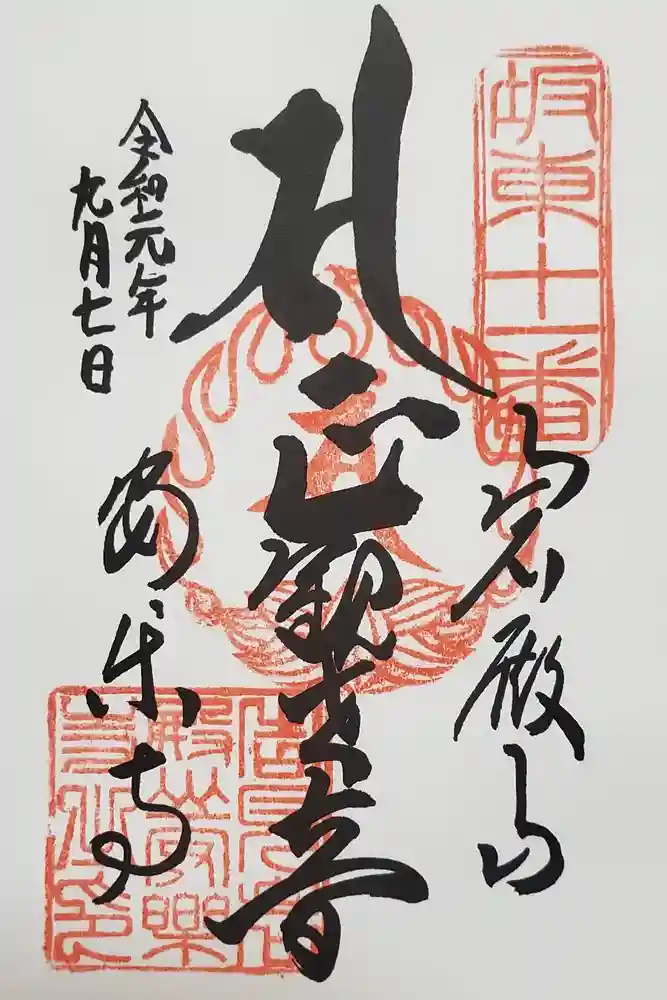 坂東十一番
岩殿山
正観世音
安楽寺
令和元年
九月七日